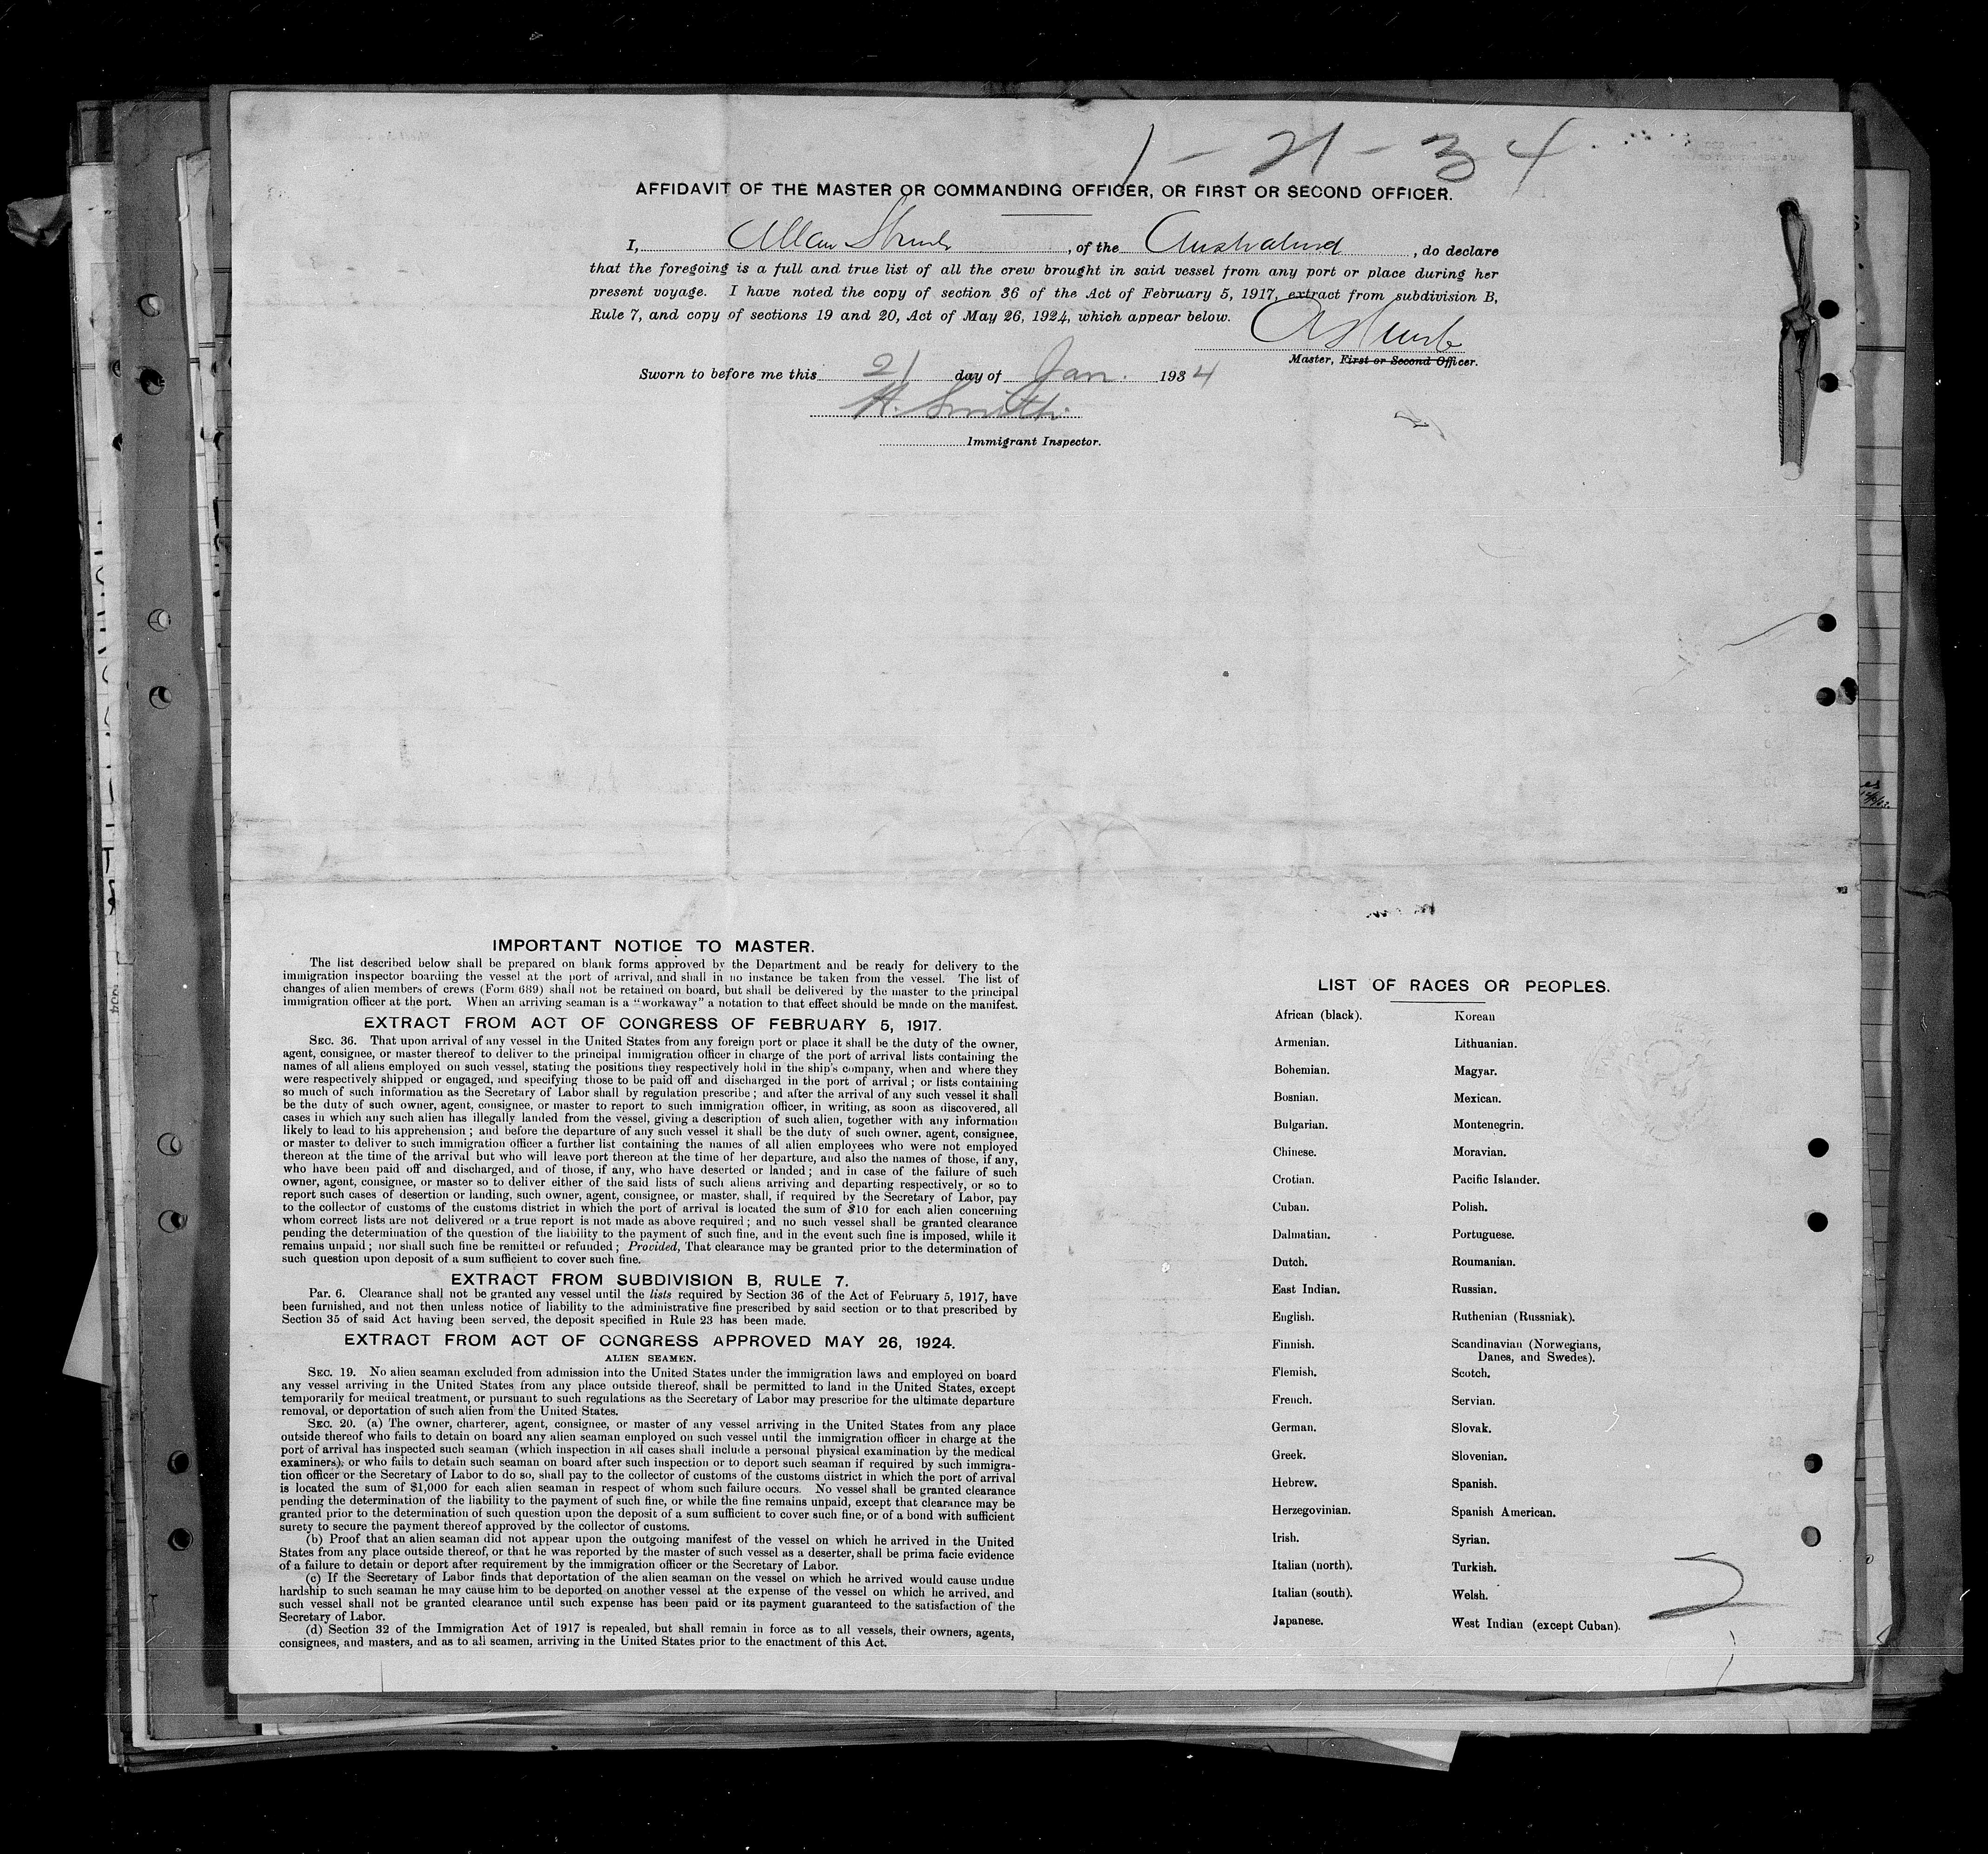 1-21-34
AFFIDAVIT OF THE MASTER OR COMMANDING OFFICER, OR FIRST OR SECOND OFFICER.
I, Allan , of the Australind, do declare
that the foregoing is a full and true list of all the crew brought in said vessel from any port or place during her
present voyage. I have noted the copy of section 36 of the Act of February 5, 1917, extract from subdivision B,
Rule 7, and copy of sections 19 and 20, Act of May 26, 1924, which appear below.
Master, First or Second Officer.
Sworn to before me this 21 day of Jan. 1934
H. Smith.
Immigrant Inspector.
IMPORTANT NOTICE TO MASTER.
The list described below shall be prepared on blank forms approved by the Department and be ready for delivery to the
immigration inspector boarding the vessel at the port of arrival, and shall in no instance be taken from the vessel. The list of
changes of alien members of crews (Form 689) shall not be retained on board, but shall be delivered by the master to the principal
immigration officer at the port. When an arriving seaman is a "workaway" a notation to that effect should be made on the manifest.
EXTRACT FROM ACT OF CONGRESS OF FEBRUARY 5, 1917.
SEC. 36. That upon arrival of any vessel in the United States from any foreign port or place it shall be the duty of the owner,
agent, consignee, or master thereof to deliver to the principal immigration officer in charge of the port of arrival lists containing the
names of all aliens employed on such vessel, stating the positions they respectively hold in the ship's company, when and where they
were respectively shipped or engaged, and specifying those to be paid off and discharged in the port of arrival; or lists containing
so much of such information as the Secretary of Labor shall by regulation prescribe; and after the arrival of any such vessel it shall
be the duty of such owner, agent, consignee, or master to report to such immigration officer, in writing, as soon as discovered, all
cases in which any such alien has illegally landed from the vessel, giving a description of such alien, together with any information
likely to lead to his apprehension; and before the departure of any such vessel it shall be the duty of such owner, agent, consignee,
or master to deliver to such immigration officer a further list containing the names of all alien employees who were not employed
thereon at the time of the arrival but who will leave port thereon at the time of her departure, and also the names of those, if any,
who have been paid off and discharged, and of those, if any, who have deserted or landed; and in case of the failure of such
owner, agent, consignee, or master so to deliver either of the said lists of such aliens arriving and departing respectively, or so to
report such cases of desertion or landing, such owner, agent, consignee, or master, shall, if required by the Secretary of Labor, pay
to the collector of customs of the customs district in which the port of arrival is located the sum of $10 for each alien concerning
whom correct lists are not delivered or a true report is not made as above required; and no such vessel shall be granted clearance
pending the determination of the question of the liability to the payment of such fine, and in the event such fine is imposed, while it
remains unpaid; nor shall such fine be remitted or refunded; Provided, That clearance may be granted prior to the determination of
such question upon deposit of a sum sufficient to cover such fine.
EXTRACT FROM SUBDIVISION B, RULE 7.
Par. 6. Clearance shall not be granted any vessel until the lists required by Section 36 of the Act of February 5, 1917, have
been furnished, and not then unless notice of liability to the administrative fine prescribed by said section or to that prescribed by
Section 35 of said Act having been served, the deposit specified in Rule 23 has been made.
EXTRACT FROM ACT OF CONGRESS APPROVED MAY 26, 1924.
ALIEN SEAMEN.
SEC. 19. No alien seaman excluded from admission into the United States under the immigration laws and employed on board
any vessel arriving in the United States from any place outside thereof, shall be permitted to land in the United States, except
temporarily for medical treatment, or pursuant to such regulations as the Secretary of Labor may prescribe for the ultimate departure
removal, or deportation of such alien from the United States.
SEC. 20. (a) The owner, charterer, agent, consignee, or master of any vessel arriving in the United States from any place
outside thereof who fails to detain on board any alien seaman employed on such vessel until the immigration officer in charge at the
port of arrival has inspected such seaman (which inspection in all cases shall include a personal physical examination by the medical
examiners), or who fails to detain such seaman on board after such inspection or to deport such seaman if required by such immigra-
tion officer or the Secretary of Labor to do so, shall pay to the collector of customs of the customs district in which the port of arrival
is located the sum of $1,000 for each alien seaman in respect of whom such failure occurs. No vessel shall be granted clearance
pending the determination of the liability to the payment of such fine, or while the fine remains unpaid, except that clearance may be
granted prior to the determination of such question upon the deposit of a sum sufficient to cover such fine, or of a bond with sufficient
surety to secure the payment thereof approved by the collector of customs.
(b) Proof that an alien seaman did not appear upon the outgoing manifest of the vessel on which he arrived in the United
States from any place outside thereof, or that he was reported by the master of such vessel as a deserter, shall be prima facie evidence
of a failure to detain or deport after requirement by the immigration officer or the Secretary of Labor.
(c) If the Secretary of Labor finds that deportation of the alien seaman on the vessel on which he arrived would cause undue
hardship to such seaman he may cause him to be deported on another vessel at the expense of the vessel on which he arrived, and
such vessel shall not be granted clearance until such expense has been paid or its payment guaranteed to the satisfaction of the
Secretary of Labor.
(d) Section 32 of the Immigration Act of 1917 is repealed, but shall remain in force as to all vessels, their owners, agents,
consignees, and masters, and as to all seamen, arriving in the United States prior to the enactment of this Act.
LIST OF RACES OR PEOPLES.
African (black). Korean
Armenian. Lithuanian.
Bohemian. Magyar.
Bosnian. Mexican.
Bulgarian. Montenegrin.
Chinese. Moravian.
Crotian. Pacific Islander.
Cuban. Polish.
Dalmatian. Portuguese.
Dutch. Roumanian.
East Indian. Russian.
English. Ruthenian (Russniak).
Finnish. Scandinavian (Norwegians,
Danes, and Swedes).
Flemish. Scotch.
French. Servian.
German. Slovak.
Greek. Slovenian.
Hebrew. Spanish.
Herzegovinian. Spanish American.
Irish. Syrian.
Italian (north). Turkish.
Italian (south). Welsh.
Japanese. West Indian (except Cuban).